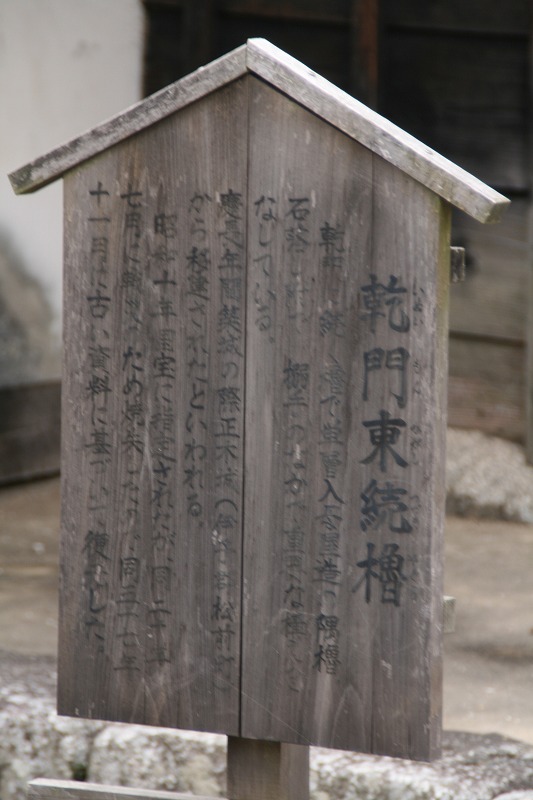 乾門東続櫓
乾門 続 櫓で 層入母屋造の隅櫓
石落し 櫓 のなかで重要な
なしている。
慶長年間築城の際正木城(伊予 松前 )
から移建されたといわれる。
昭和十年国宝に指定されたが、同二十年
七月に戦災のため焼失したので、同五十七年
十一月に古い資料に基づいて復元した。